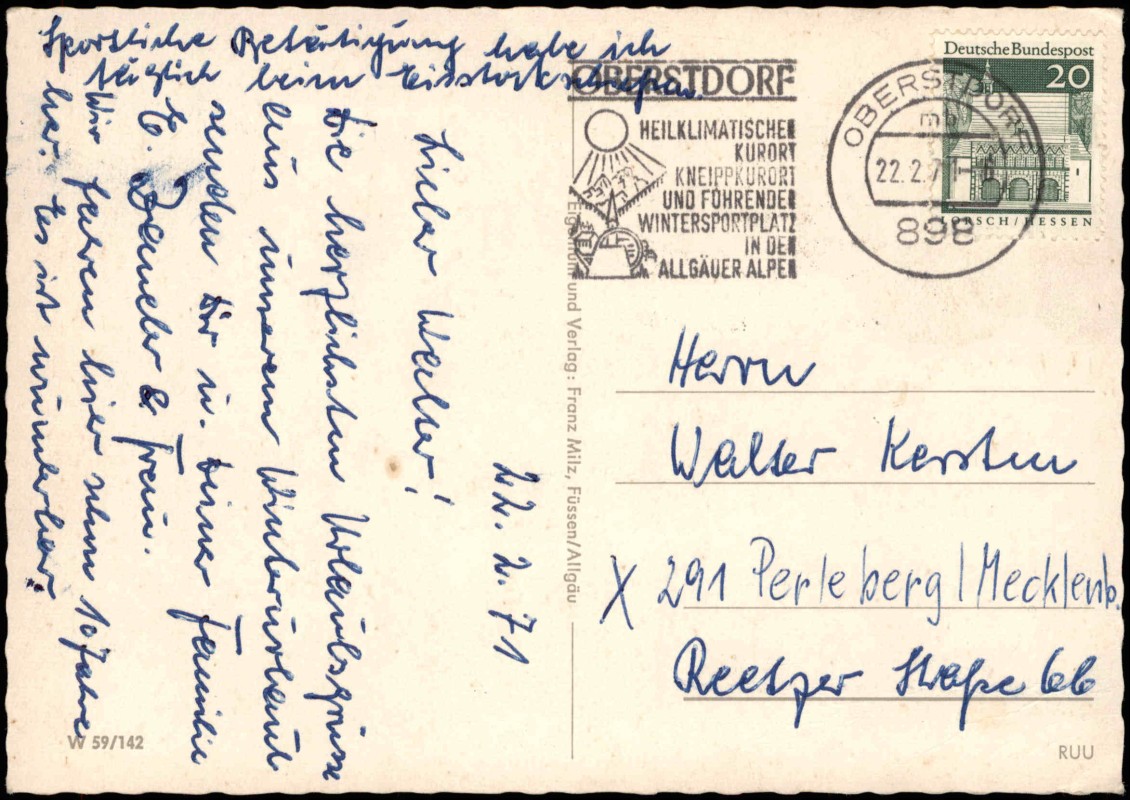 22. 2. 71
Lieber Walter!
Die herzlichsten Urlaubsgrüsse
aus unserem Winterurlaub
senden Dir u. Deiner Familie
E. & Frau.
Wir fahren hier schon 10 Jahre
her. Es ist wunderbar.
Sportliche Betätigung habe ich
täglich beim Eisstockschießen.
W 59/142
Eigentum und Verlag: Franz Milz, Füssen/Allgäu
OBERSTDORF
HEILKLIMATISCHER
KURORT
KNEIPPKURORT
UND FÜHRENDER
WINTERSPORTPLATZ
IN DEN
ALLGÄUER ALPEN
OBERSTDORF
mb
22.2.71
898
Deutsche Bundespost
20
LORSCH/HESSEN
Herrn
Walter Kersten
X 291 Perleberg/Mecklenb.
Reetzer Straße 66
RUU